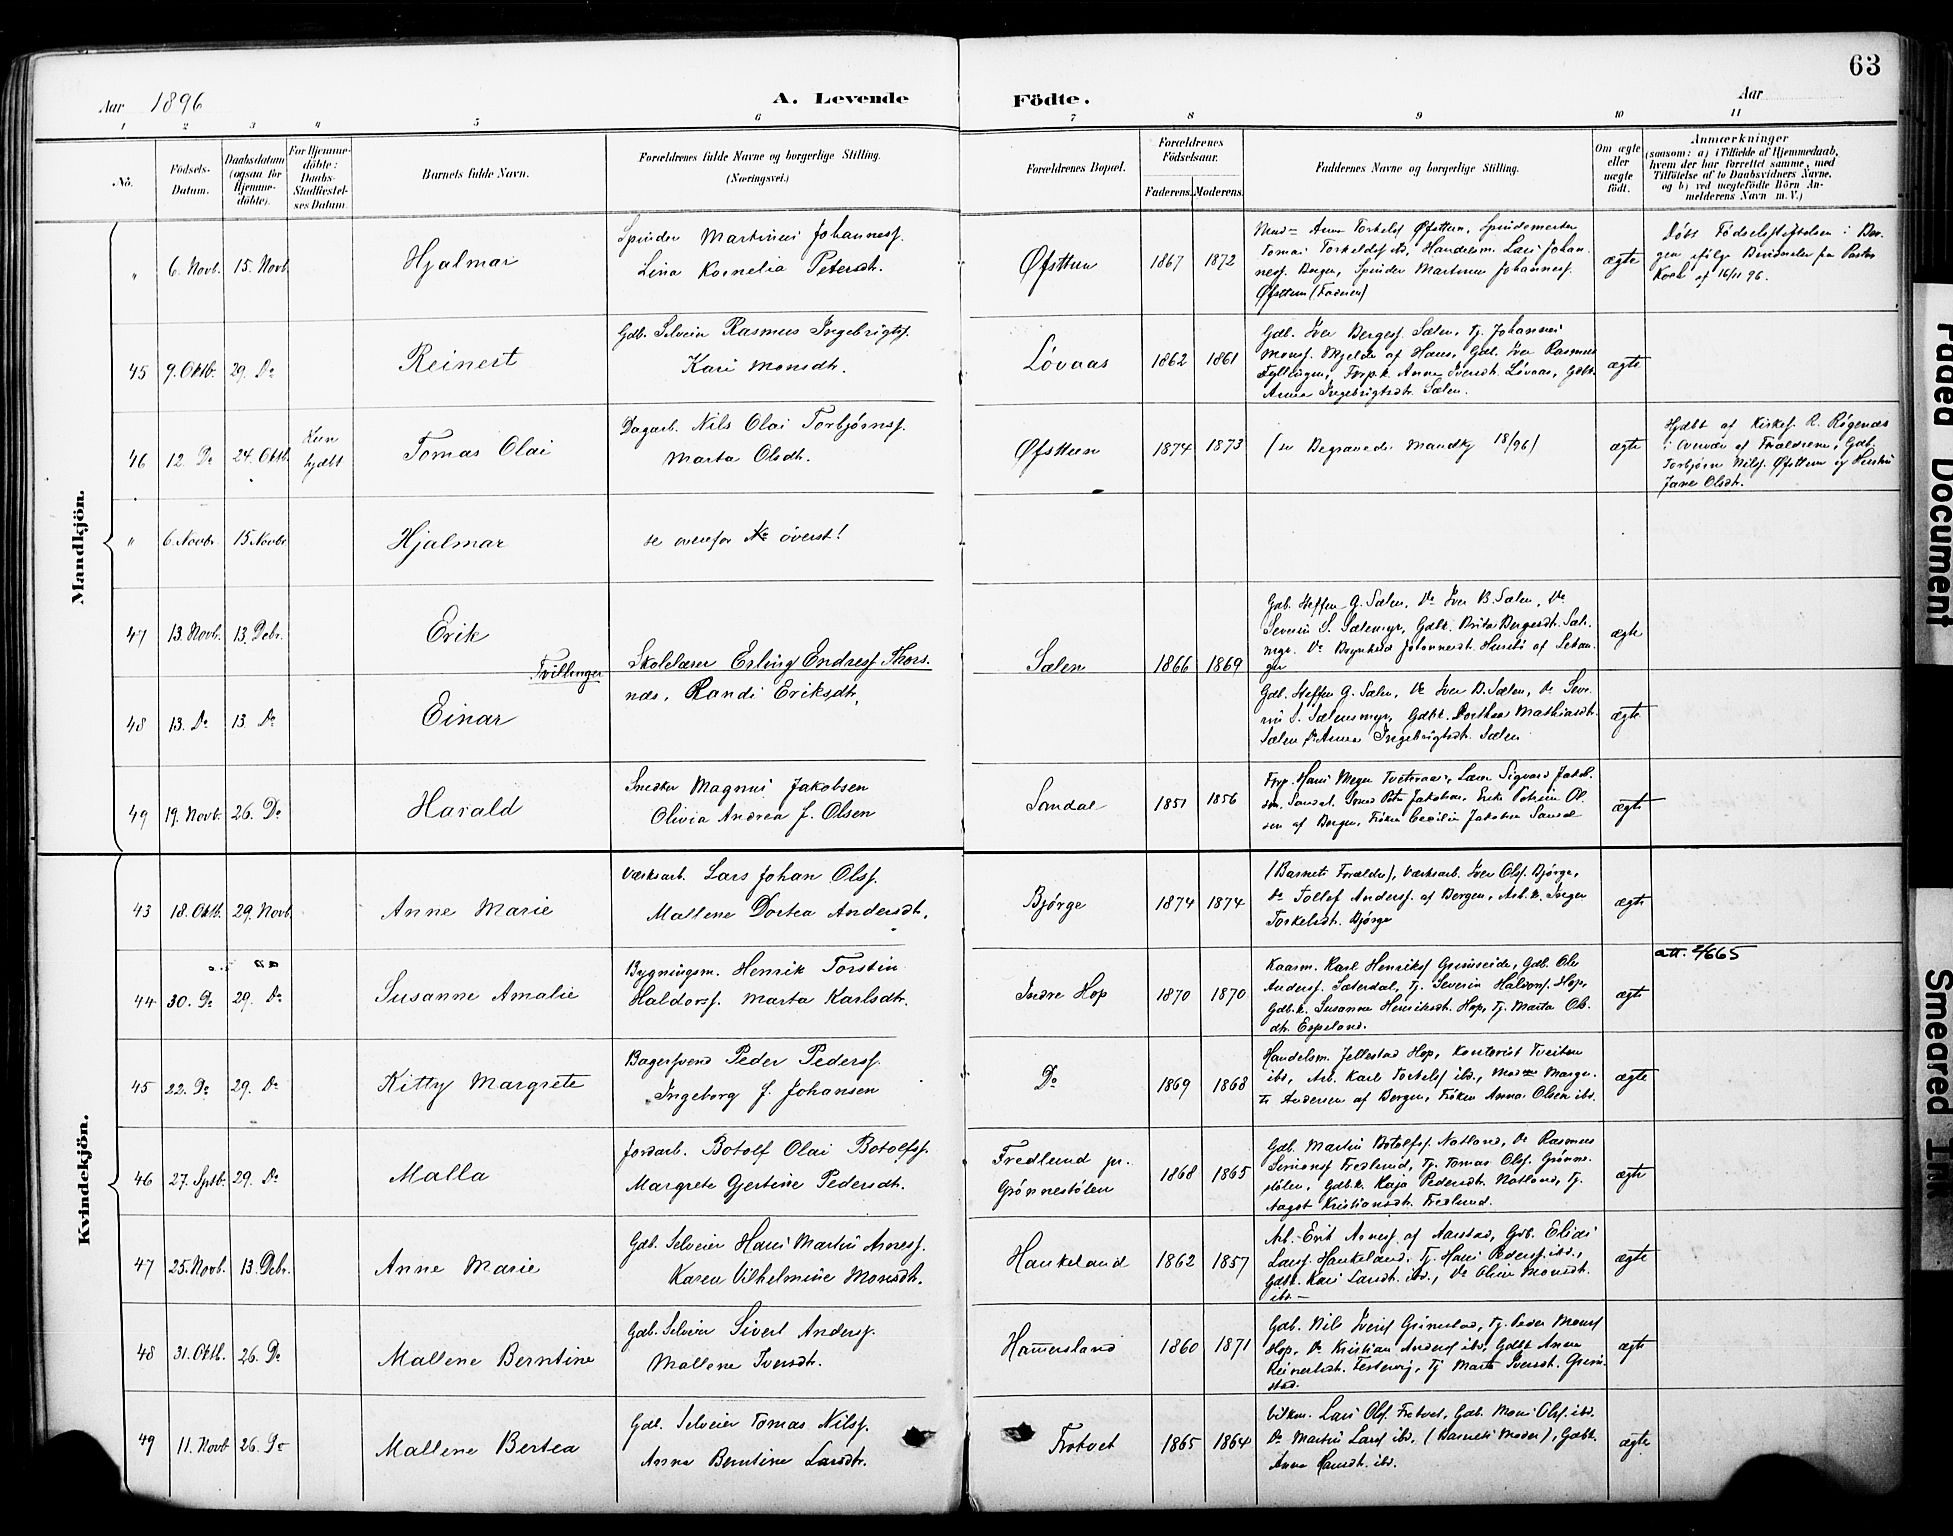 63
Aar 1896 A. Levende Födte. Aar
1 2 3 4 5 6 7 8 9 10 11
No.
Födsels-
Datum.
Daabsdatum
(ogsaa for
Hjemme-
döbte).
For Hjemme-
döbte:
Daabs-
Stadfæstel-
ses Datum.
Barnets fulde Navn.
Forældrenes fulde Navne og borgerlige Stilling.
(Næringsvei.)
Forældrenes Bopæl.
Forældrenes
Födselsaar.
Faderens. Moderens.
Faddernes Navne og borgerlige Stilling.
Om ægte
eller
uægte
födt.
Anmærkninger
(saasom: a) i Tilfælde af Hjemmedaab,
hvem der har forrettet samme, med
Tilföielse af to Daabsvidners Navne,
og b) ved uægtefödte Börn An-
melderens Navn m. V.)
Mandkjön.
" 6. Novb. 15. Novb. Hjalmar
Spinder Martinus Johannesf.
Lina Kornelia Petersdt.
Øfsttun 1867 1872
Anna Torkelsf Øfsttun, Spindemester
Tomas Torkeldsf, Handelsm. Lars Johan-
nesf. Bergen, Spinder Martinus Johannesf.
Øfsttun (Faderen)
ægte
Døbt Fødselsstiftelsen i Ber-
gen ifølge fra Pastor
Koch af 16/11 96.
45 9. Oktb. 29. Do Reinert
Gdb. Selveier Rasmus Ingebrigtsf.
Kari Monsdt.
Løvaas 1862 1861
Gdb. Iver Bergesf. Sælen, Tj. Johannes
Monsf. Mjelde af Haus, Gdb. Iver Rasmus
Fyllingen, Frp.k. Anna Iversdt. Løvaas, Gdbk.
Anna Ingebrigtsdt. Sælen.
ægte
46 12. Do 24. Oktb. Kun
hjdbt
Tomas Olai
Dagarb. Nils Olai Torbjørnsf.
Marta Olsdt.
Øfsttun 1874 1873
(se Begravede Mandkj 18/96)
ægte
Hjdbt af Kirkes. R. Røgenæs
i Overvær af Forældrene, Gdb.
Torbjørn Nilsf. Øfsttun og Hustru
Jane Olsdt.
" 6. Novbr. 15 Novbr Hjalmar
se ovenfor No øverst!
47 13. Novb. 13. Debr. Erik
Tvillinger
Skolelærer Erling Endresf. Thors-
næs, Randi Eriksdt.
Sælen 1866 1869
Gdb. Steffen G. Sælen, Do Iver B. Sælen, Do
Severin S. Sælemyr, Gdbk. Brita Bergesdt. Sæl-
myr. Do Johannesdt. Husebø af Lekan-
ger
ægte
48 13. Do 13. Do Einar
Gdb. Steffen G. Sælen, Do Iver B. Sælen, Do Seve-
rin S. Sælensmyr, Gdbk. Dorthea Mathiasdt.
Sælen, Do Anna Ingebrigtsdt. Sælen
ægte
49 19. Novb. 26. Do Harald
Snedker Magnus Jakobsen
Olivia Andrea f. Olsen
Sandal 1851 1856
Frp. Hans Meyer Tveteraas, Lærer Sigvard Jakob-
sen, Sandal, Peter Jakobsen, Enke Petrine Ol-
sen af Bergen, Frøken Cecilie Jakobsen Sandal
ægte
Kvindekjön.
43 18. Oktb. 29. Novb. Anne Marie
Værksarb. Lars Johan Olsf.
Mallene Dortea Andersdt.
Bjørge 1874 1874
(Barnets Forældre), Værksarb. Iver Olsf. Bjørge,
Do Tollef Andersf. af Bergen, Arb.k. Inger
Torkelsdt. Bjørge
ægte
44 30. Do 29. Do Susanne Amalie
Bygningsm. Henrik Torstin
Haldorsf. Marta Karlsdt.
Indre Hop 1870 1870
Kaarm. Karl Henriksf Grimseide, Gdb. Ole
Andersf. Sæterdal, Tj. Severin Haldorsf. Hop,
Gdb.k. Susanna Henriksdt. Hop, Tj. Marta Ols-
dt. Espeland.
ægte
att. 2/665
45 22. Do 29. Do Kitty Margrete
Bagersvend Peder Pedersf.
Ingeborg f. Johansen
Do 1869 1868
Handelsm. Jellestad Hop, Kontorist Tveiten
ibd, Arb. Karl Torkelsf ibd., Madme Margre-
te Andersen af Bergen, Frøken Anna Olsen ibd.
ægte
46 27. Sptb. 29. Do Malla
Jordarb. Botolf Olai Botolfsf.
Margrete Gjertine Pedersdt.
Fredlund pr.
Grønnestølen
1868 1865
Gdb. Martin Botolfsf. Natland, Do Rasmus
Simonsf Fredlund, Tj. Tomas Olsf. Grønne-
stølen, Gdb.k. Kaja Pedersdt. Natland, Tj.
Aagot Kristiansdt. Fredlund.
ægte
47 25. Novb. 13. Debr. Anne Marie
Gdb. Selveier Hans Martin Arnesf.
Karen Vilhelmine Monsdt.
Haukeland 1862 1857
Arb. Erik Arnesf. af Aarstad, Gdb. Elias
Larsf. Haukeland, Tj. Hans Pedersf. ibd.,
Gdbk. Kari Larsdt. ibd., Do Oline Monsdt.
ibd.
ægte
48 31. Oktb. 26. Do Mallene Berntine
Gdb. Selveier Sivert Andersf.
Mallene Iversdt.
Hamersland 1860 1871
Gdb. Nils Iversf Grimstad, Tj. Peder Monsf
Hop, Do Kristian Andersf ibd, Gdbk Anna
Reinertsdt. Festervig, Tj Marta Iversdt. Grim-
stad.
ægte
49 11. Novb 26. Do Mallene Bertea
Gdb. Selveier Tomas Nilsf.
Anna Berntine Larsdt.
Frotvet 1865 1864
Vilkm. Lars Olsf. Frotvet, Gdb. Mons Olsf. ibd.
Do Martin Larsf ibd. (Barnets Moder), Gdbk.
Anna Hansdt. ibd.
ægte
Faded Document
Smeared Ink